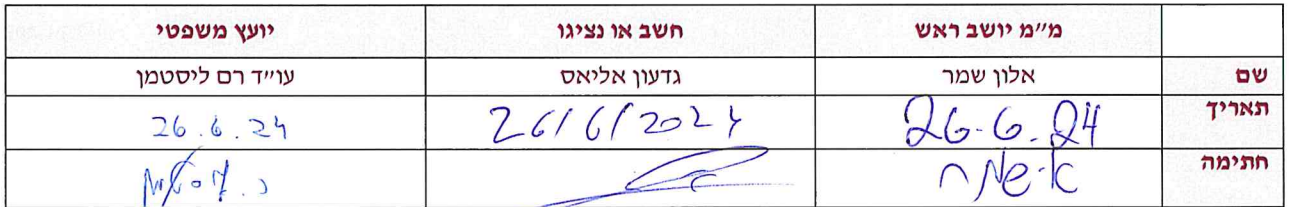 מ״מ יושב ראש חשב או נציגו יועץ משפטי
שם אלון שמר גדעון אליאס עו״ד רם ליסטמן
תאריך 26.6.24 26/6/2024 26.6.24
חתימה